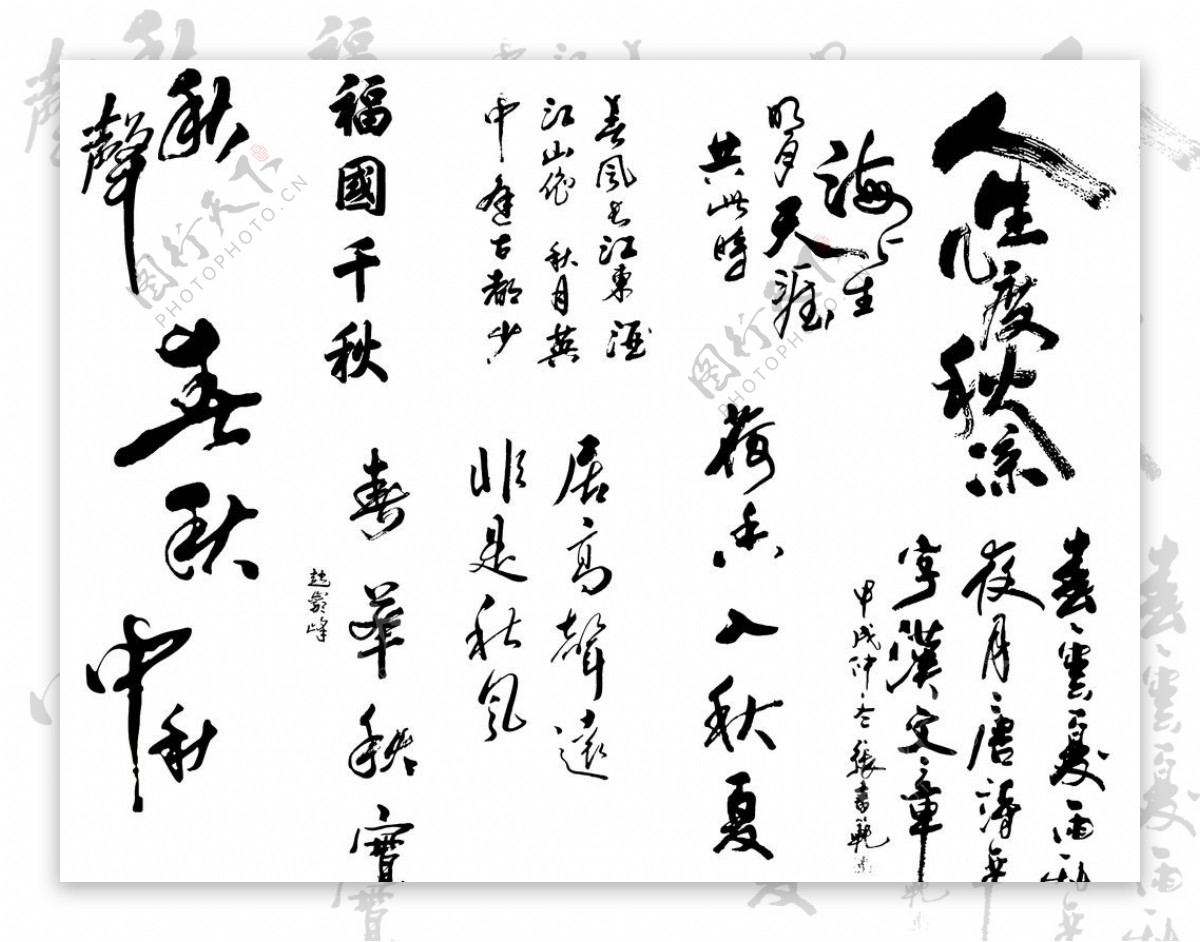 人生
几度
秋凉
海上生
明月天涯
共此时
春风
江東
江山
秋月
中
古都
福國千秋
秋
聲
春
秋
中
秋
春雲夏雨秋
夜月唐詩
字漢文章
甲戌仲冬張書範
荷香入秋夏
居高聲遠
非是秋風
春華秋實
趙嶺峰
图行天下
PHOTOPHOTO.CN
图行天下
PHOTOPHOTO.CN